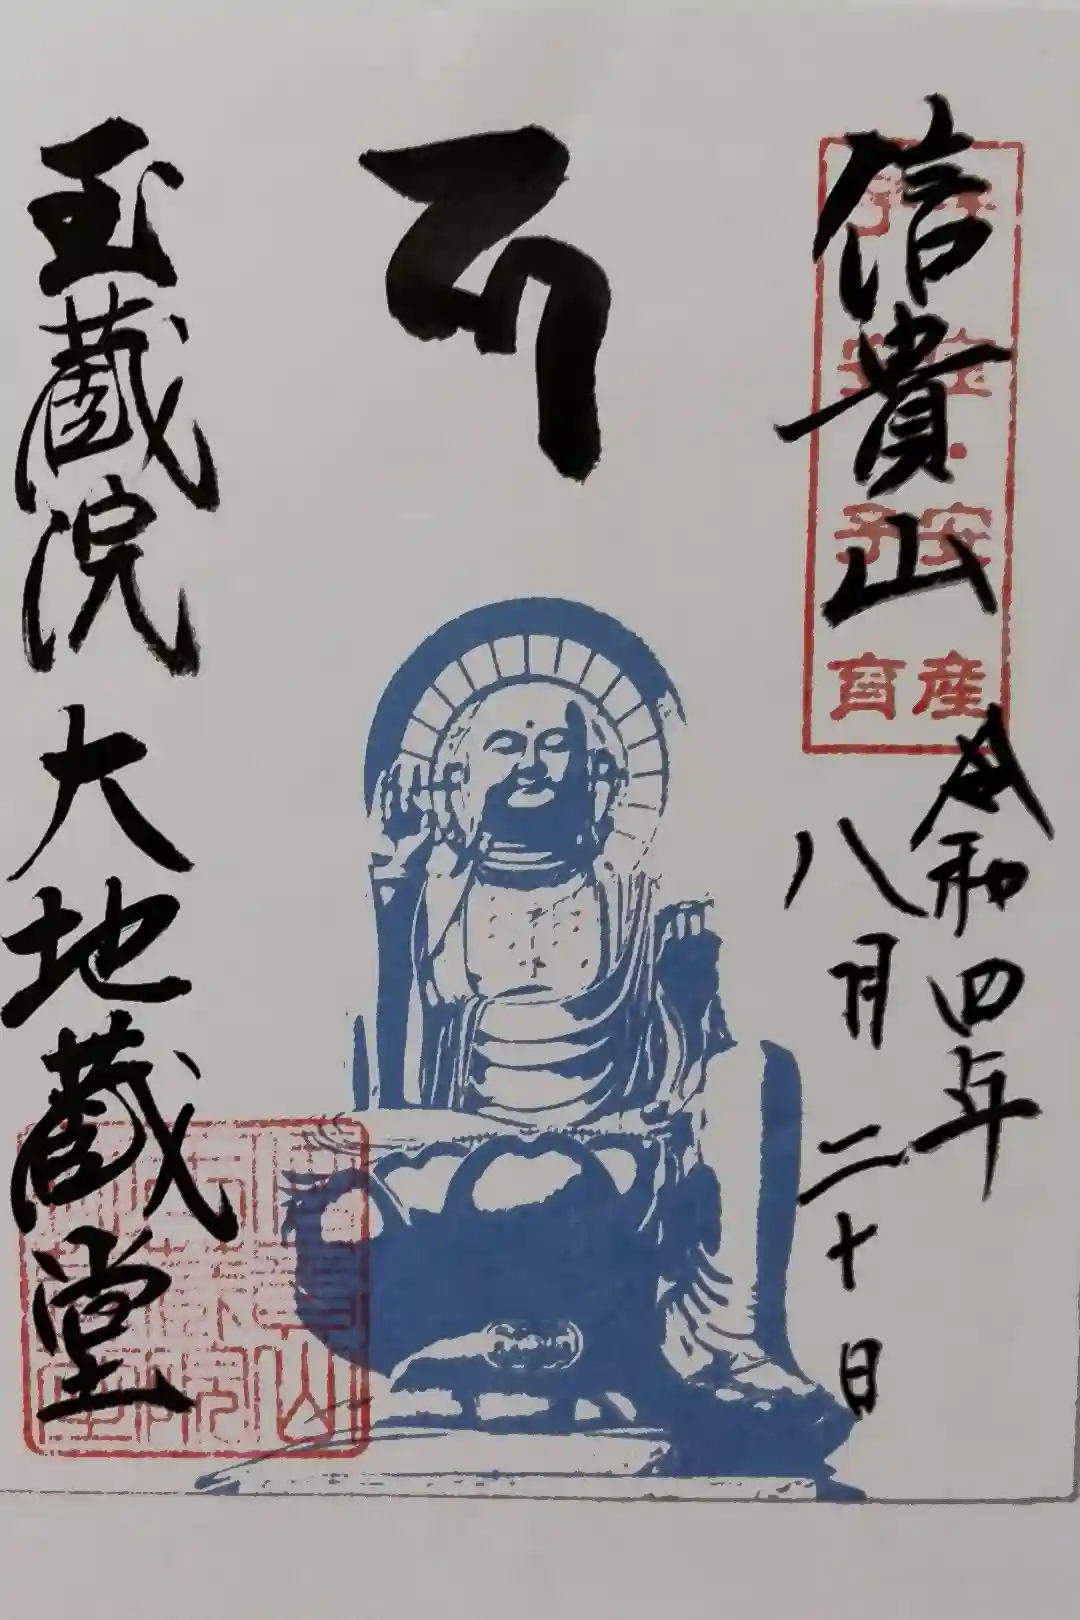 信貴山
安産
子育
令和四年
八月二十日
玉蔵院 大地蔵堂